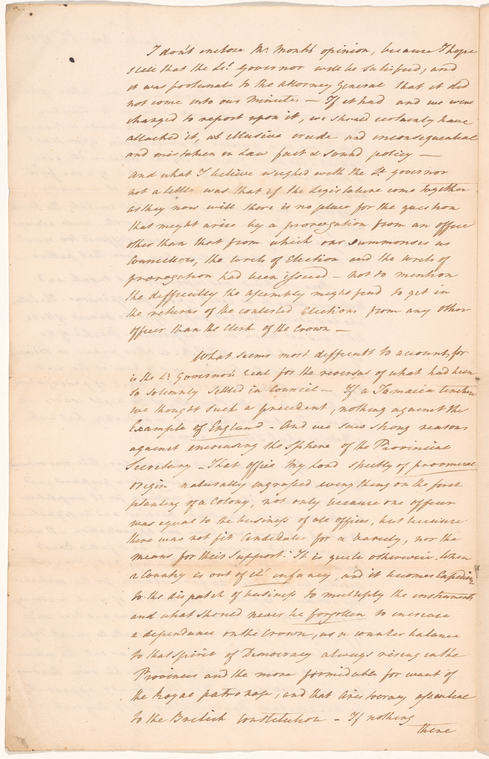 I don't enclose Mr. Monk's opinion, because I hope
I see that the Lt. Governor will be satisfied, and
it was fortunate to the Attorney General that it did
not come into our Minutes — If it had and we were
charged to report upon it, we should certainly have
attacked it, as elusive crude and inconsequential
and mistaken in Law fact & sound policy —
and what I believe weighed with the Lt. governor
not a little was that if the Legislature come together
as they now will there is no place for the question
that might arise by a prorogation from an office
other than that from which our summonses as
Councillors, the writs of Election and the writs of
prorogation had been issued — not to mention
the difficulty the assembly might find to get in
the returns of the contested elections from any other
officer than the Clerk of the Crown —
What seems most difficult to account for
is the Lt. Governor's zeal for the reversal of what had been
so solemnly settled in Council — If a Jamaica
we thought such a precedent, nothing against the
Example of England — And we saw strong reasons
against increasing the sphere of the Provincial
Secretary — That office My Lord speedly of provincial
Origin naturally engrossed every thing on the first
planting of a Colony, not only because one officer
was equal to the business of all offices, but because
there was not fit Candidates for a variety, nor the
means for their support. It is quite otherwise when
a Country is out of it's infancy, and it becomes Expedient
to the dispatch of business to multiply the instruments
and what should never be forgotten to increase
a dependance on the Crown, as a counter balance
to that spirit of Democracy always rising in the
Provinces and the more formidable for want of
the Royal patronage, and that Aristocracy essential
to the British Constitution — If nothing
there